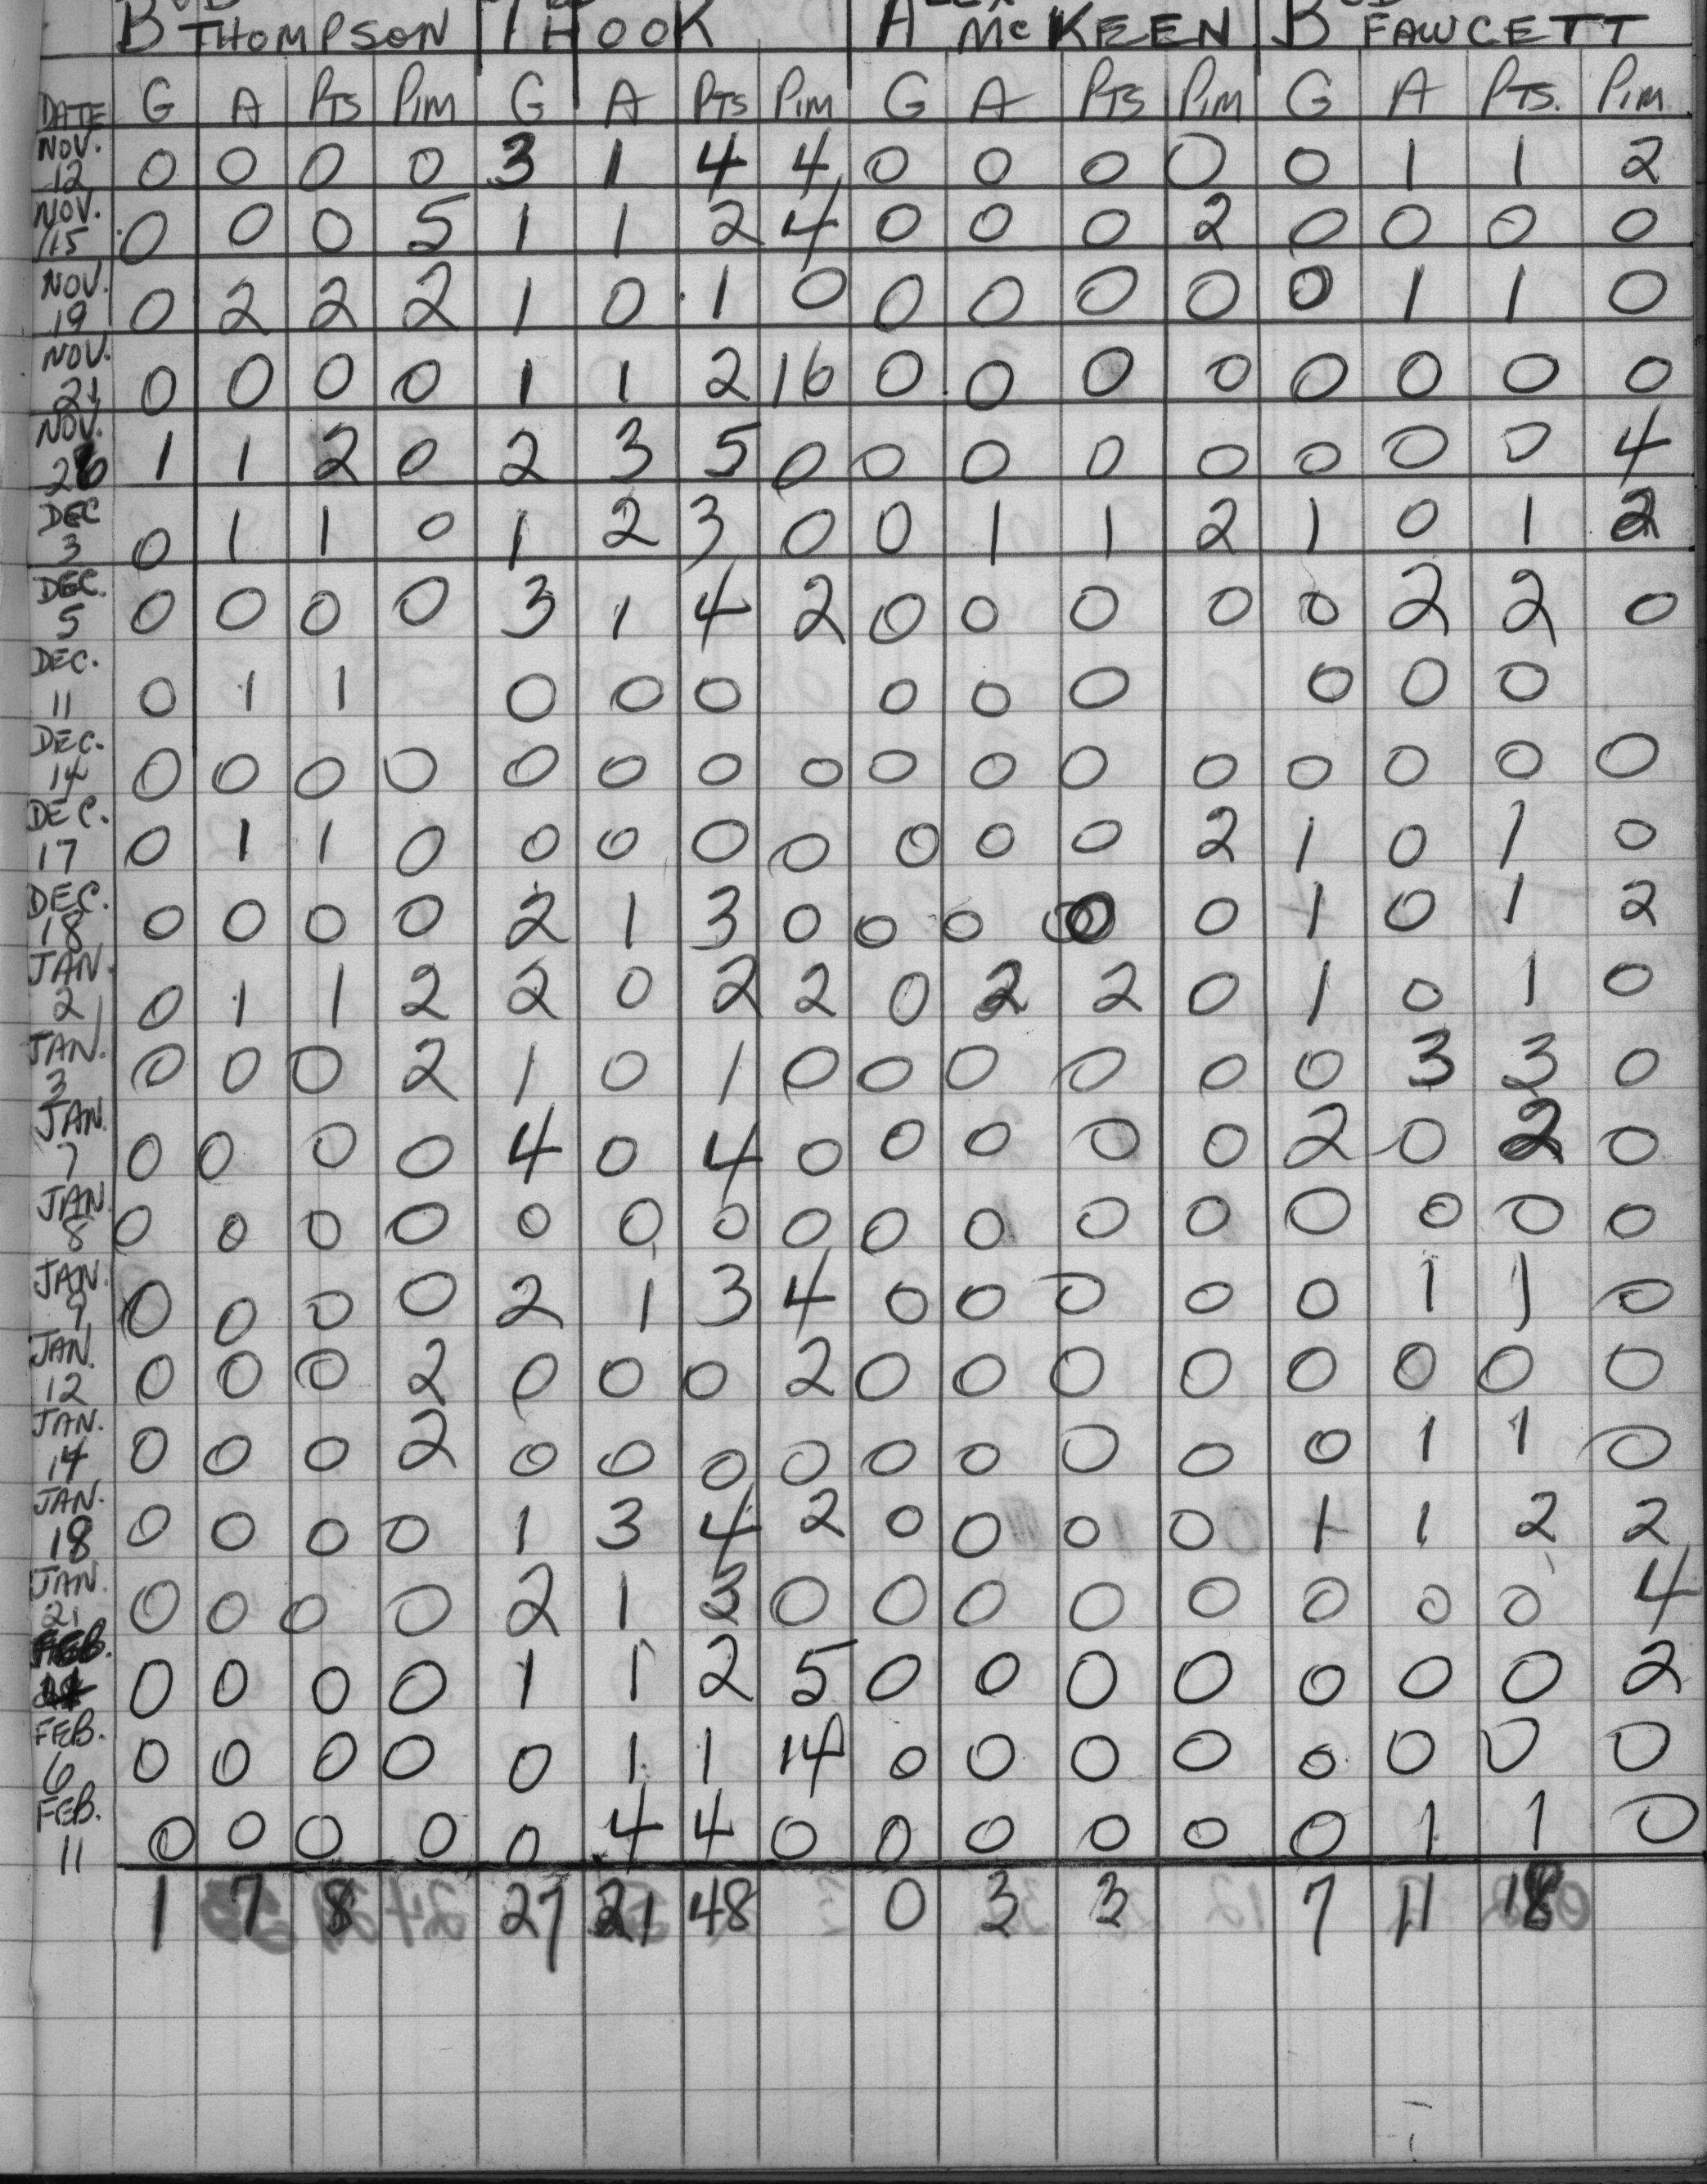 B THOMPSON HOOK A McKEEN B FAWCETT
DATE G A PTS PIM G A PTS PIM G A PTS PIM G A PTS. PIM
NOV. 12 0 0 0 0 3 1 4 4 0 0 0 0 0 1 1 2
NOV. 15 0 0 0 5 1 1 2 4 0 0 0 2 0 0 0 0
NOV. 19 0 2 2 2 1 0 1 0 0 0 0 0 0 1 1 0
NOV. 21 0 0 0 0 1 1 2 16 0 0 0 0 0 0 0 0
NOV. 26 1 1 2 0 2 3 5 0 0 0 0 0 0 0 0 4
DEC 3 0 1 1 0 1 2 3 0 0 1 1 2 1 0 1 2
DEC. 5 0 0 0 0 3 1 4 2 0 0 0 0 0 2 2 0
DEC. 11 0 1 1 0 0 0 0 0 0 0 0 0
DEC. 14 0 0 0 0 0 0 0 0 0 0 0 0 0 0 0 0
DEC. 17 0 1 1 0 0 0 0 0 0 0 0 2 1 0 1 0
DEC. 18 0 0 0 0 2 1 3 0 0 0 0 0 1 0 1 2
JAN. 2 0 1 1 2 2 0 2 2 0 2 2 0 1 0 1 0
JAN. 3 0 0 0 2 1 0 1 0 0 0 0 0 0 3 3 0
JAN. 7 0 0 0 0 4 0 4 0 0 0 0 0 2 0 2 0
JAN. 8 0 0 0 0 0 0 0 0 0 0 0 0 0 0 0 0
JAN. 9 0 0 0 0 2 1 3 4 0 0 0 0 0 1 1 0
JAN. 12 0 0 0 2 0 0 0 2 0 0 0 0 0 0 0 0
JAN. 14 0 0 0 2 0 0 0 0 0 0 0 0 0 1 1 0
JAN. 18 0 0 0 0 1 3 4 2 0 0 0 0 1 1 2 2
JAN. 21 0 0 0 0 2 1 3 0 0 0 0 0 0 0 0 4
FEB. 0 0 0 0 1 1 2 5 0 0 0 0 0 0 0 2
FEB. 6 0 0 0 0 0 1 1 14 0 0 0 0 0 0 0 0
FEB. 11 0 0 0 0 0 4 4 0 0 0 0 0 0 1 1 0
1 7 8 27 21 48 0 3 3 7 11 18